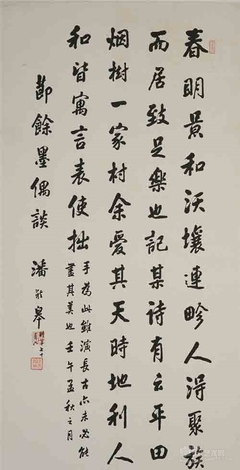 春明景和沃壤連畛人得聚族
而居致足樂也記某詩有云平田
烟樹一家村余愛其天時地利人
和皆寓言表使拙
手為此雖演長古亦未必能
盡其美也壬午孟秋之月
節餘墨偶談
潘齡皋